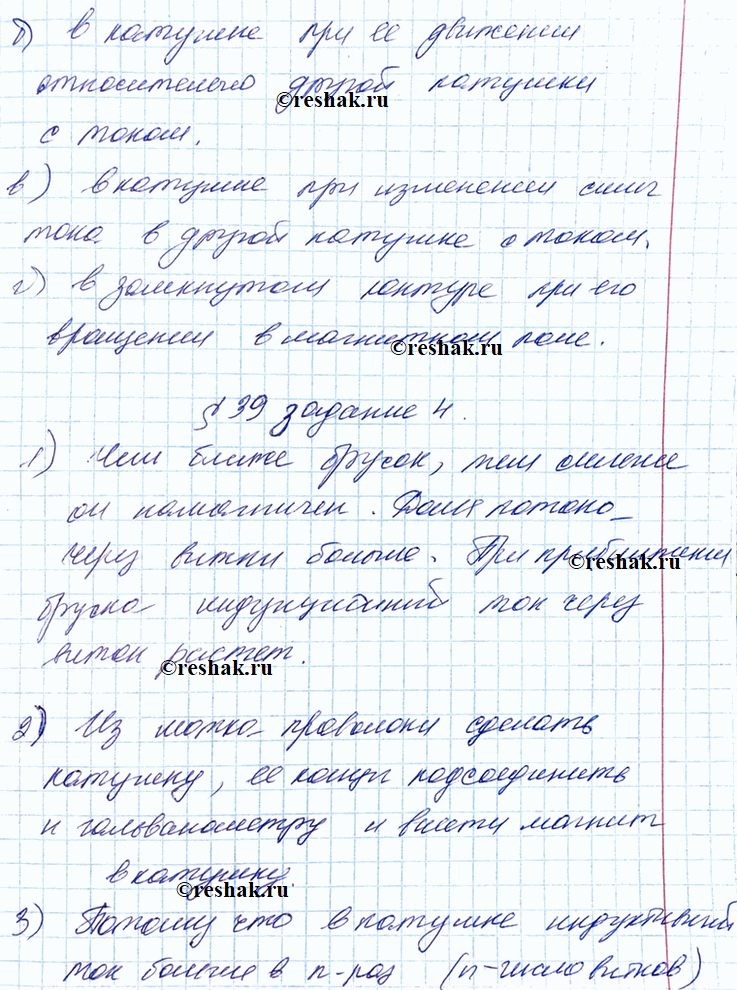 б) в катушке при ее движении
относительно другой катушки
©reshak.ru
с током.
в) в катушке при изменении силы
тока в другой катушке с током.
г) в замкнутом контуре при его
вращении в магнитном поле.
©reshak.ru
§ 39 задание 4.
1) Чем ближе брусок, тем сильнее
он намагничен. Доля потока
через витки больше. При приближении
©reshak.ru
бруска индукционный ток через
виток растет.
©reshak.ru
2) Из мотка проволоки сделать
катушку, ее концы подсоединить
к гальванометру и ввести магнит
в катушку.
©reshak.ru
3) Потому что в катушке индуктивный
ток больше в n-раз (n-число витков)